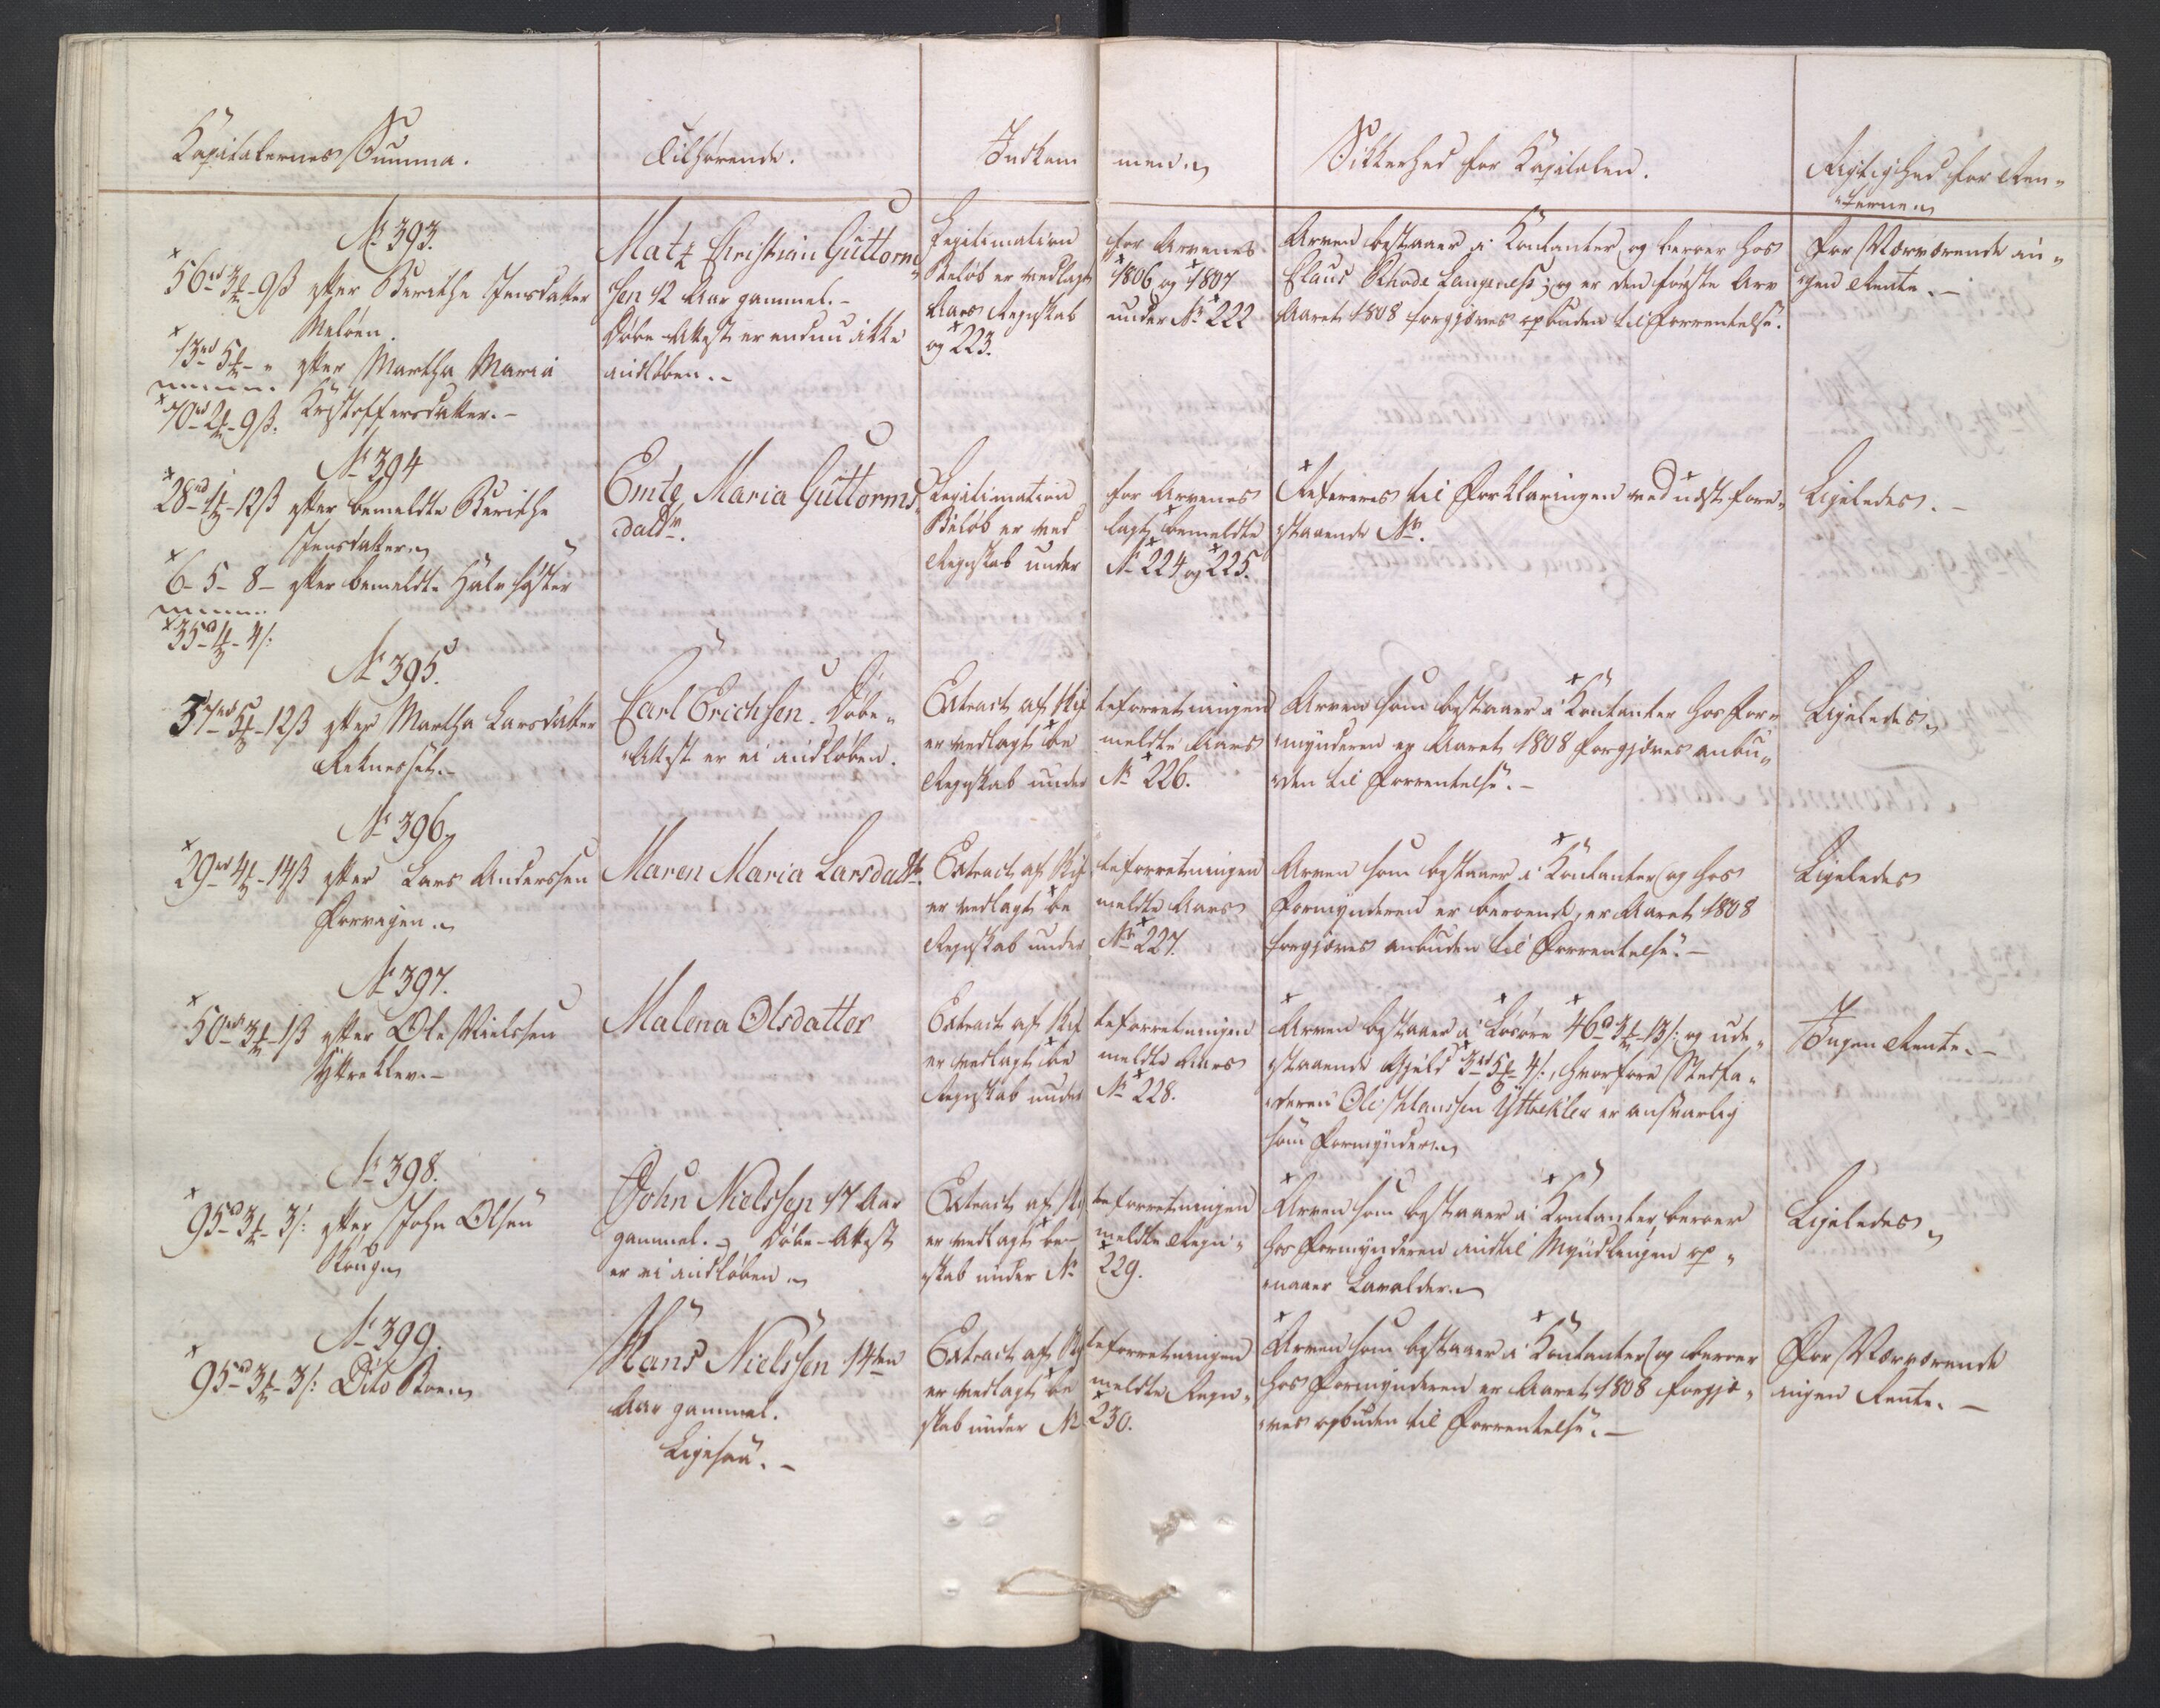 Kapitalernes Summa.
Tilhørende.
Indkom
men
Sikkerhed for Kapitalen.
Rigtighed for Ren-
terne
No 393.
56 rd 3 - 9 ß efter Berethe Jensdatter
Meløen.
13 rd 5 - " efter Martha Maria
Kristoffersdatter. -
70 rd 2 - 9 ß.
Matz Christian Guttorm-
sen 12 Aar gammel. -
Døbe-Attest er endnu ikke
indløben. -
Legitimation
Beløb er vedlagt
Aars Regnskab
og 223.
for Arvenes
1806 og 1807
under No 222
Arven bestaaer i Kontanter og beroer hos
Claus Rhode Langnes; og er den første Arv
Aaret 1808 forgjæves opbuden til Forrentelse.
For Nærværende in-
gen Rente. -
No 394
28 rd 1 - 12 ß efter bemeldte Berithe
Jensdatter
6 - 5 - 8 - efter bemeldte Halvsøster
35 rd 1 - 4 ß:
Emte Maria Guttorms-
datr.
Legitimation
Beløb er ved
Regnskab under
for Arvenes
lagt bemeldte
No 224 og 225.
Refereres til Forklaringen ved næst fore-
staaende Nr.
Ligeledes. -
No 395.
37 rd 5 - 12 ß efter Martha Larsdatter
Reknesset. -
Carl Erichsen. Døbe-
Attest er ei indløben.
Extract af Skif
er vedlagt be
Regnskab under
teforretningen
meldte Aars
No 226.
Arven som bestaaer i Kontanter hos For-
mynderen er Aaret 1808 forgjæves anbu-
den til Forrentelse. -
Ligeledes
No 396
29 rd 4 - 14 ß efter Lars Anderssen
Forvigen.
Maren Maria Larsdattr.
Extract af Skif
er vedlagt be
Regnskab under
teforretningen
meldte Aars
No 227.
Arven som bestaaer i Kontanter og hos
Formynderen er beroende, er Aaret 1808
forgjæves anbuden til Forrentelse. -
Ligeledes
No 397.
50 rd 3 - 1 ß efter Ole Nielssen
Yttreklev. -
Malena Olsdatter
Extract af Skif
er vedlagt be
Regnskab under
teforretningen
meldte Aars
No 228.
Arven bestaaer i Løsøre 46 rd 3 - 13 ß: og ude-
staaende Gjeld 3 rd 5 - 4 ß:, hvorfore Stedfa-
deren Ole Hanssen Yttrekles er ansvarlig
som Formynder
Ingen Rente. -
No 398.
95 rd 3 - 3 ß: efter John Olsen
Skoug
John Nielssen 17 Aar
gammel. - Døbe-Attest
er ei indløben
Extract af Skif
er vedlagt be-
skab under No
teforretningen
meldte Regn-
229.
Arven som bestaaer i Kontanter, beroer
hos Formynderen indtil Myndlingen op-
naaer Lavalder
Ligeledes
No 399.
95 rd 3 - 3 ß: Dito Boen
Hans Nielssen 14ten
Aar gammel.
Ligesaa. -
Extract af Skif
er vedlagt be
skab under No
teforretningen
meldte Regn-
230.
Arven som bestaaer i Kontanter og beroer
hos Formynderen er Aaret 1808 forgjæ-
ves opbuden til Forrentelse. -
For Nærværende
ingen Rente. -